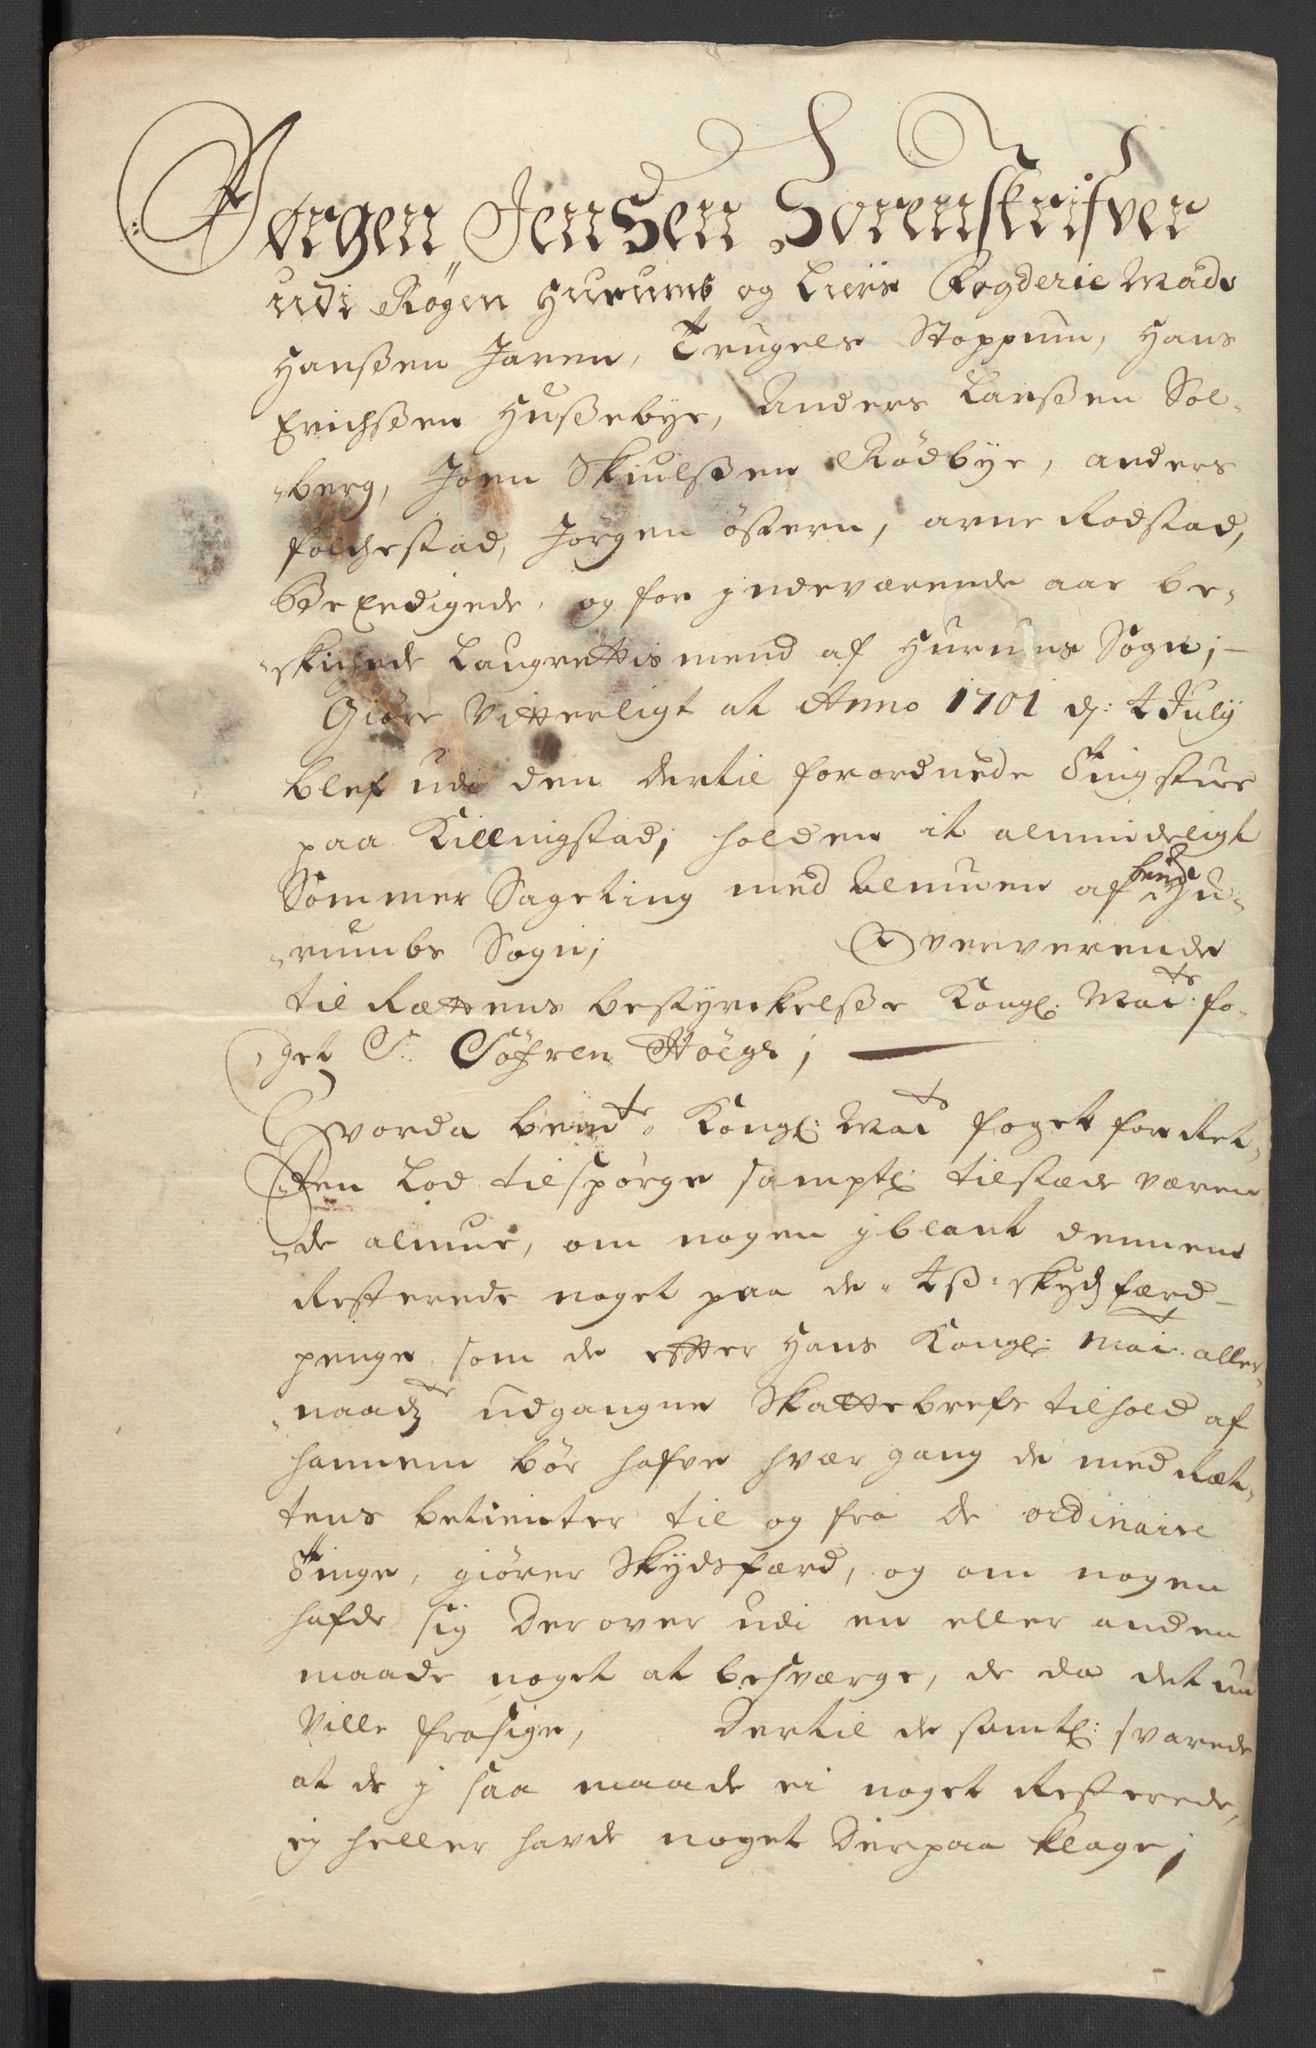 Jørgen Jensen Sorenskrifver
udi Røgen Hurums og Liers Fogderie Mads
Hanßen Jaren, Trugels Stoppum, Hans
Erichsen Hußebye, Anders Larßen Sol-
-berg, Joen Skiulßen Rødbye, anders
folchestad, Jørgen östern, arne Rodstad,
BeEedigede, og for jndeværende aar be-
-skichede Laugrettismend af Hurums Sogn;
Giøre Vitterligt at Anno 1701 d: 4 July
blef udi den dertil forordnede Tingstue
paa Killingstad; holden it almindeligt
Sommer Sageting med Almuen af bemte Hu-
-rumbs Sogn; Oververende
til Rettens bestyrckelße Kongl: Maits: fo-
get Sr. Söfren Høegh;
Hvorda bemte Kongl: Maits foget for Ret-
ten Lod tilspørge samptl: tilstæde væren
-de almue, om nogen jblant dennem
Resterede noget paa de 4ß: skydsfærd-
penge, som de efter Hans Kongl: Mait: aller-
-naadte udgangne Skattebrefs tilhold af
hannem bör hafve hvær gang de med Ræt-
tens betienter til og fra de ordinaire
Tinge, giører Skydsfærd, og om nogen
hafde sig der over udi en eller anden
maade noget at besværge, de da det nu
ville frasige, Dertil de samtl: svarede
at de j saa maade ei noget Resterede,
ej heller havde noget derpaa klage;